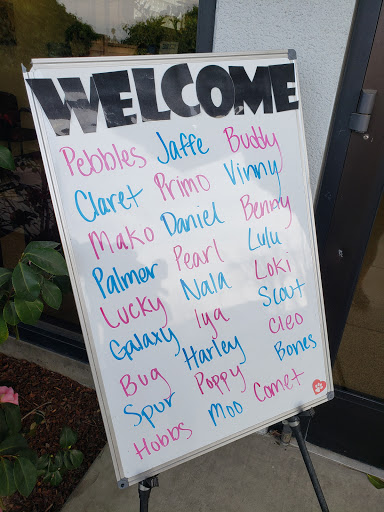 WELCOME
Pebbles Jaffe Buddy
Claret Primo Vinny
Mako Daniel Benny
Palmer Pearl Lulu
Lucky Nala Loki
Galaxy Iya Scout
Bug Harley Cleo
Spur Poppy Bones
Hobbs Moo Comet